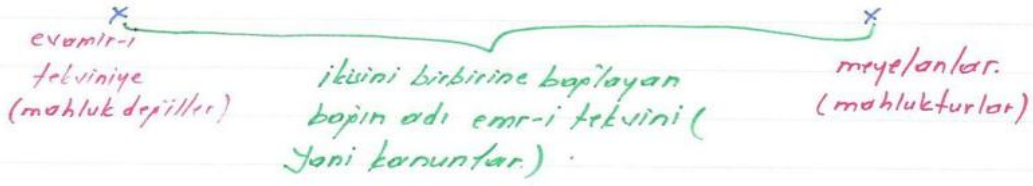 x x
evamir-i
tekviniye
(mahluk değiller)
ikisini birbirine bağlayan
bağın adı emr-i tekvini (
Yani kanunlar.)
meyelanlar.
(mahlukturlar)